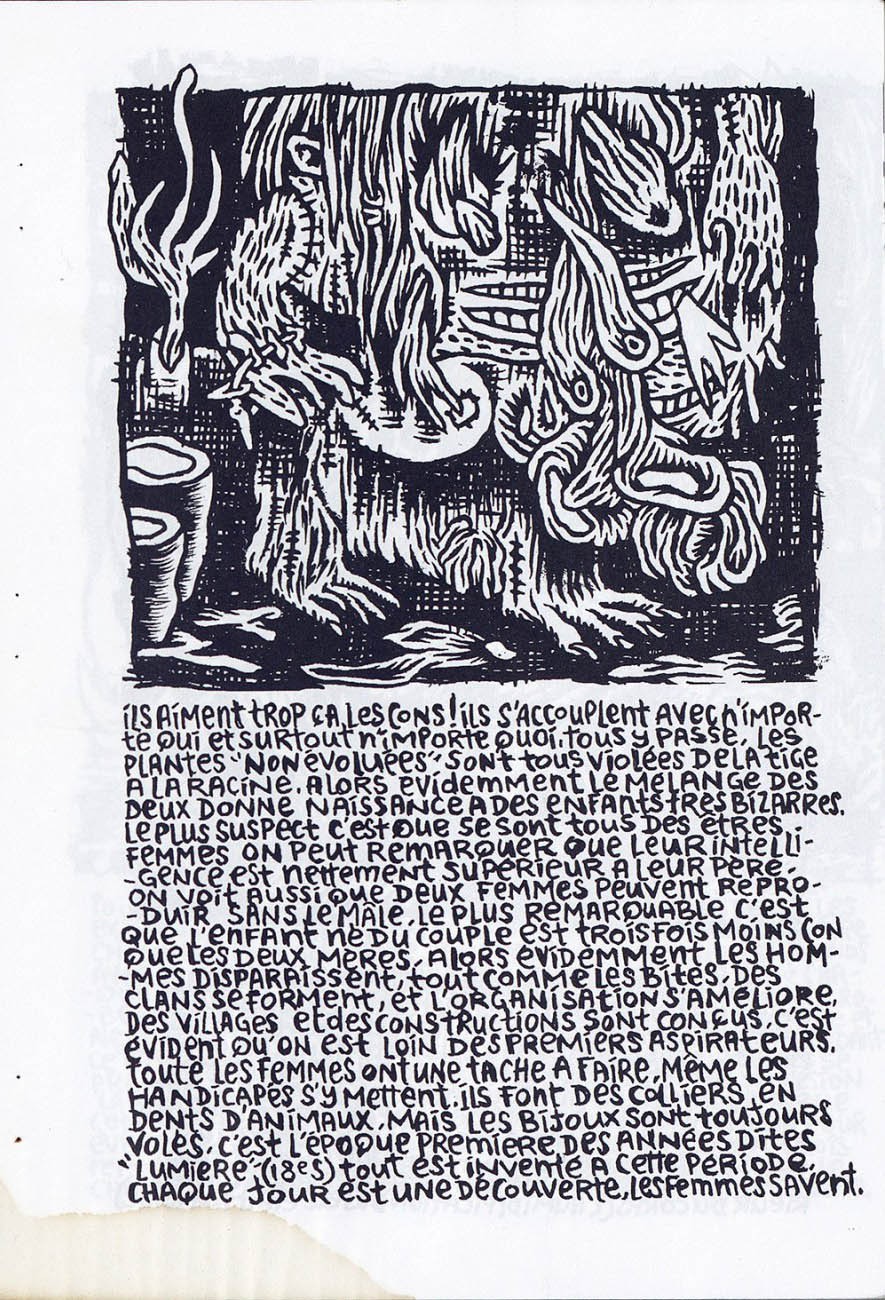 ils aiment trop ça, les cons! ils s'accouplent avec n'impor-
te qui et surtout n'importe quoi. tous y passe, les
plantes "non évoluées" sont tous violées de la tige
a la racine. alors évidemment le mélange des
deux donne naissance a des enfants très bizarres.
le plus suspect c'est que se sont tous des êtres
femmes on peut remarquer que leur intelli-
-gence est nettement supérieur a leur père.
on voit aussi que deux femmes peuvent repro-
-duir sans le mâle. le plus remarquable c'est
que l'enfant né du couple est trois fois moins con
que les deux mères. alors évidemment les hom-
-mes disparaissent, tout comme les bites. des
clans se forment, et l'organisation s'améliore.
des villages et des constructions sont conçus. c'est
évident qu'on est loin des premiers aspirateurs.
toute les femmes ont une tache a faire, même les
handicapés s'y mettent. ils font des colliers en
dents d'animaux. mais les bijoux sont toujours
volés. c'est l'époque première des années dites
"lumière" (18es) tout est inventé a cette période.
chaque jour est une découverte, les femmes savent.